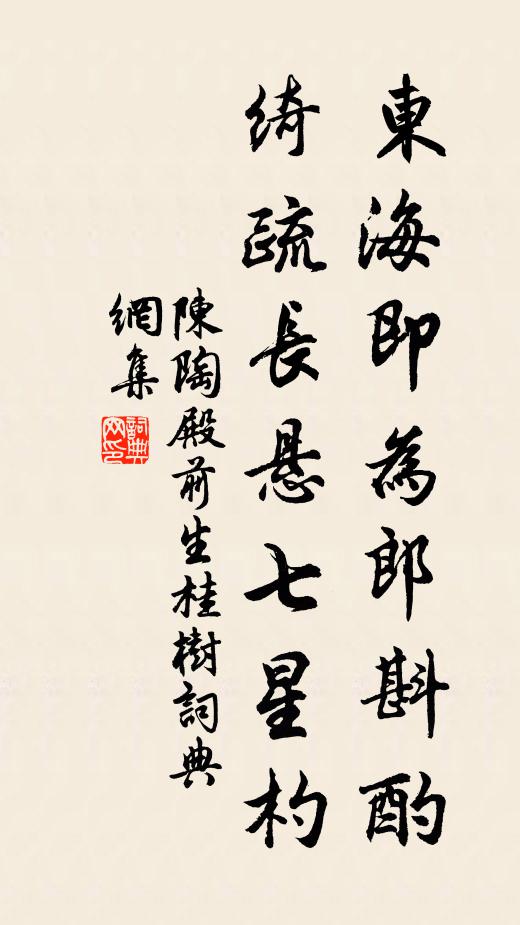 東海即為郎斟酌
綺疏長悬七星杓
陳陶殿前生桂樹詞典
網集
詞典
网印